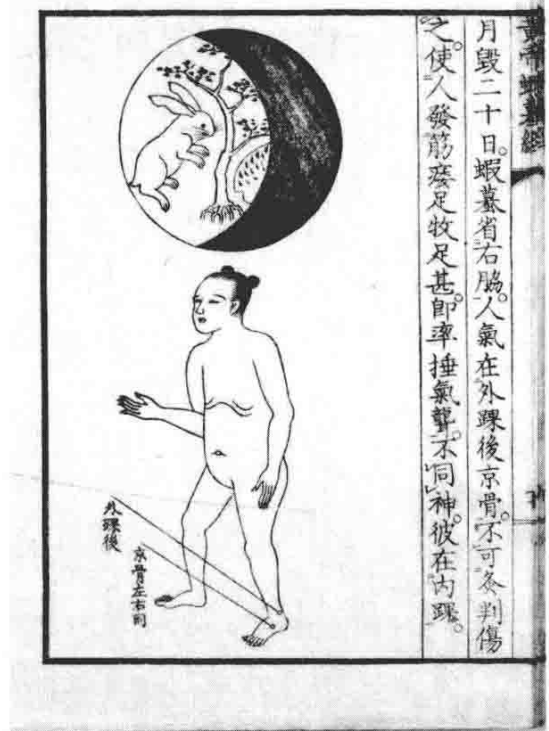 黃帝蝦蟇經
月毀二十日。蝦蟇省右脇。人氣在外踝後京骨。不可灸判傷
之。使人發筋痿足牧足甚。卽率捶氣聾。不同神。彼在內踝。
外踝後
京骨左右同